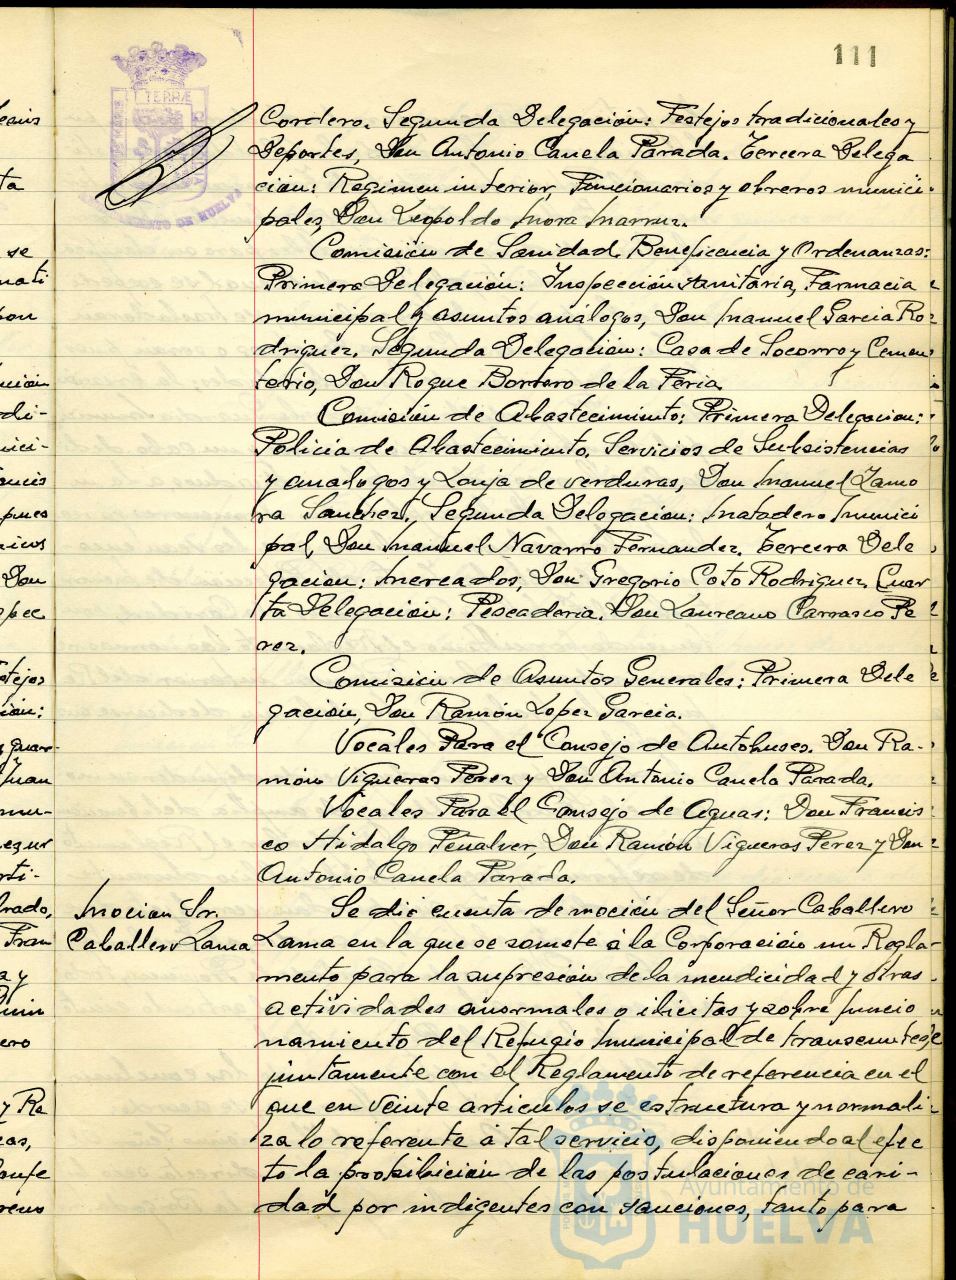 111
Cordero. Segunda Delegación: Festejos tradicionales y
Deportes, Don Antonio Canela Parada. Tercera Delega
ción: Regimen interior, Funcionarios y obreros munici-
pales, Don Leopoldo Mora Marruz.
Comisión de Sanidad, Beneficencia y Ordenanzas:
Primera Delegación: Inspección sanitaria, Farmacia
municipal y asuntos análogos, Don Manuel Garcia Ro-
driguez. Segunda Delegación: Casa de Socorro y Cemen-
terio, Don Roque Borrero de la Feria.
Comisión de Abastecimiento: Primera Delegacion:
Policia de Abastecimiento. Servicios de Subsistencias
y analogos y Lonja de verduras, Don Manuel Zamo
ra Sanchez, Segunda Delegacion: Matadero Munici
pal, Don Manuel Navarro Fernandez. Tercera Dele
gacion: Mercados, Don Gregorio Coto Rodriguez, Cuar
ta Delegación: Pescaderia. Don Laureano Carrasco Pe
rez.
Comisión de Asuntos Generales: Primera Dele
gación, Don Ramón Lopez Garcia.
Vocales Para el Consejo de Autobuses. Don Ra-
món Vigueras Perez y Don Antonio Canela Parada.
Vocales Para el Consejo de Aguas: Don Francis
co Hidalgo Peñalver, Don Ramón Vigueras Perez y Don
Antonio Canela Parada.
Mocion Sr.
Caballero Lama
Se dió cuenta de moción del Señor Caballero
Lama en la que se somete á la Corporación un Regla-
mento para la supresión de la mendicidad y otras
actividades anormales o ilicitas y sobre funcio
namiento del Refugio Municipal de transeuntes,
juntamente con el Reglamento de referencia en el
que en veinte articulos se estructura y normali-
za lo referente á tal servicio, disponiendo al efec
to la prohibición de las postulaciones de cari-
dad por indigentes con sanciones, tanto para
Ayuntamiento de
HUELVA